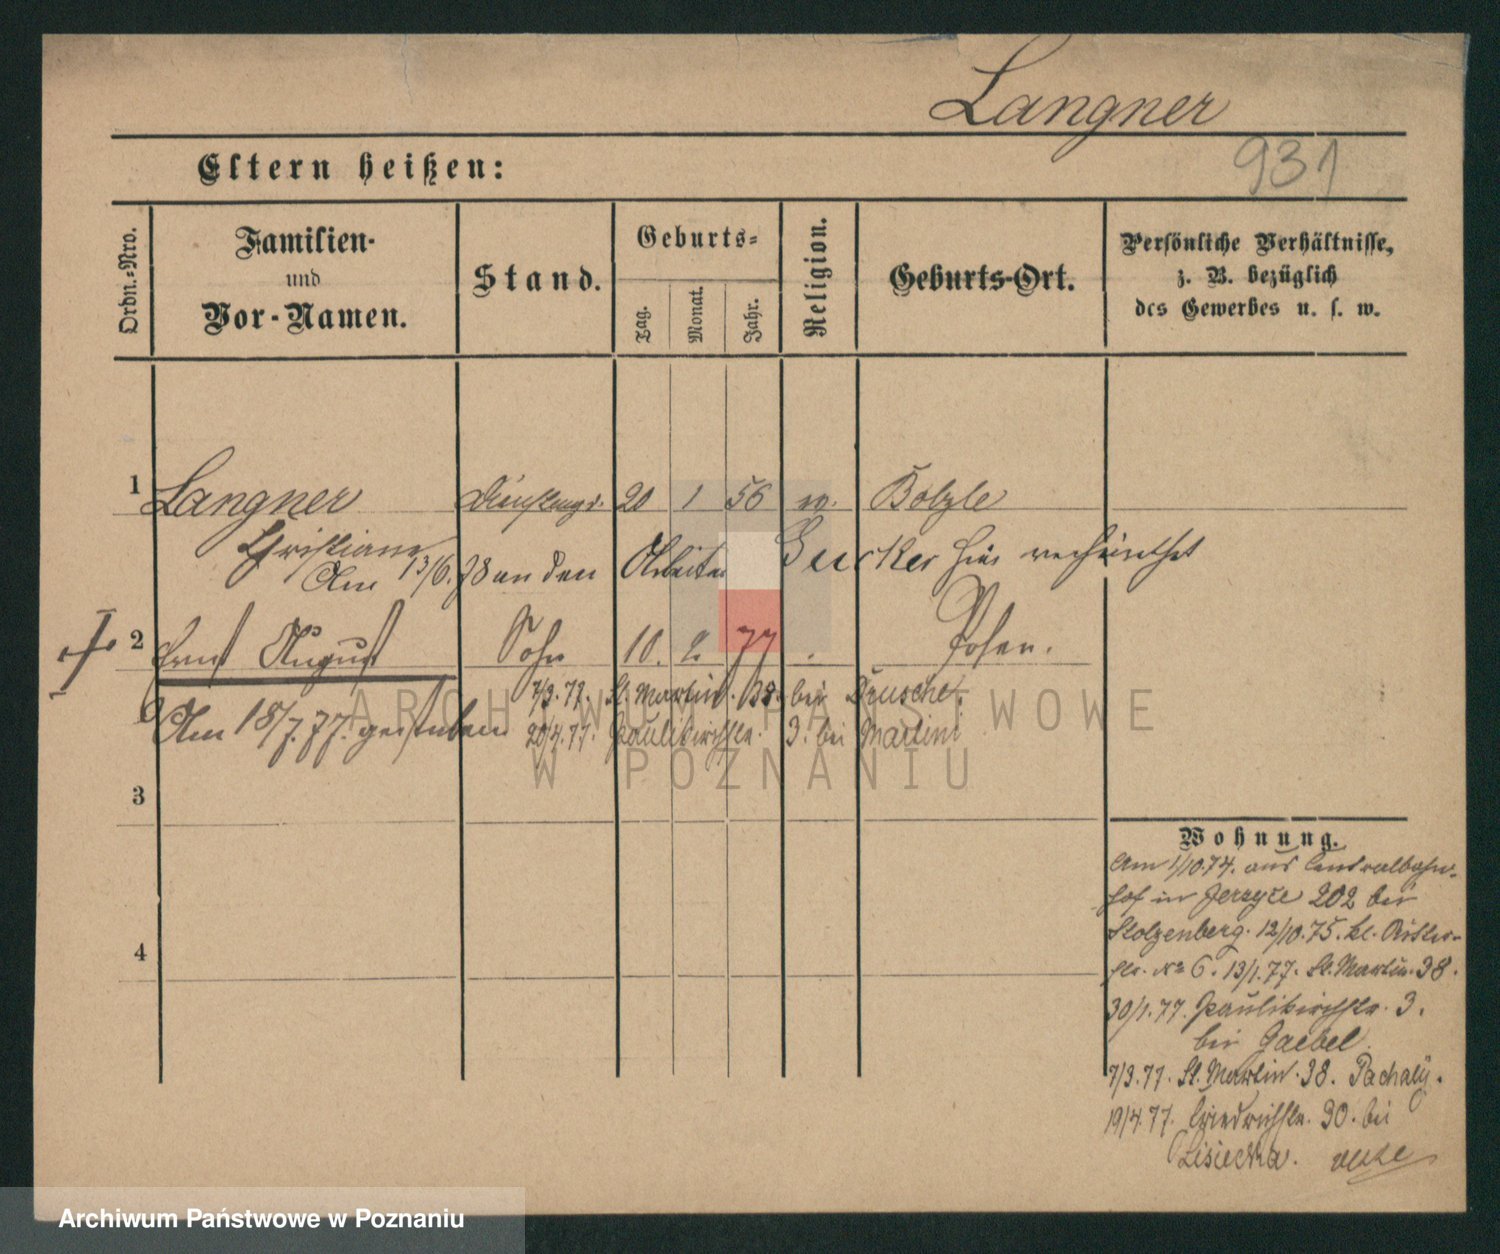 Langner
931
Eltern heißen:
Ordn.-Nro.
Familien-
und
Vor-Namen.
Stand.
Geburts-
Tag.
Monat.
Jahr.
Religion.
Geburts-Ort.
Persönliche Verhältnisse,
z. B. bezüglich
des Gewerbes u. s. w.
1 Langner 20 1 56 Bolzle
Christiane
Am 13/6. 78 an den Arbeiter hier verheirathet
2 Ernst August Sohn 10. 2. 77 Posen.
7/3.77. St. Martin 38. bei Deusche.
Am 18/7.77. gestorben 20/4.77. Paulikirchstr. 3. bei Martini
3
4
Wohnung.
Am 1/10.74. aus Centralbahn-
hof in Jerzyce 202 bei
Stolzenberg. 12/10.75. kl. Ritter-
str. No 6. 13/1.77. St. Martin. 38.
30/1.77. Paulikirchstr. 3.
bei Gaebel.
7/3.77. St. Martin. 38. Pachaly.
19/4.77. Friedrichstr. 30. bei
Lisiecka.
ARCHIWUM PAŃSTWOWE
W POZNANIU
Archiwum Państwowe w Poznaniu